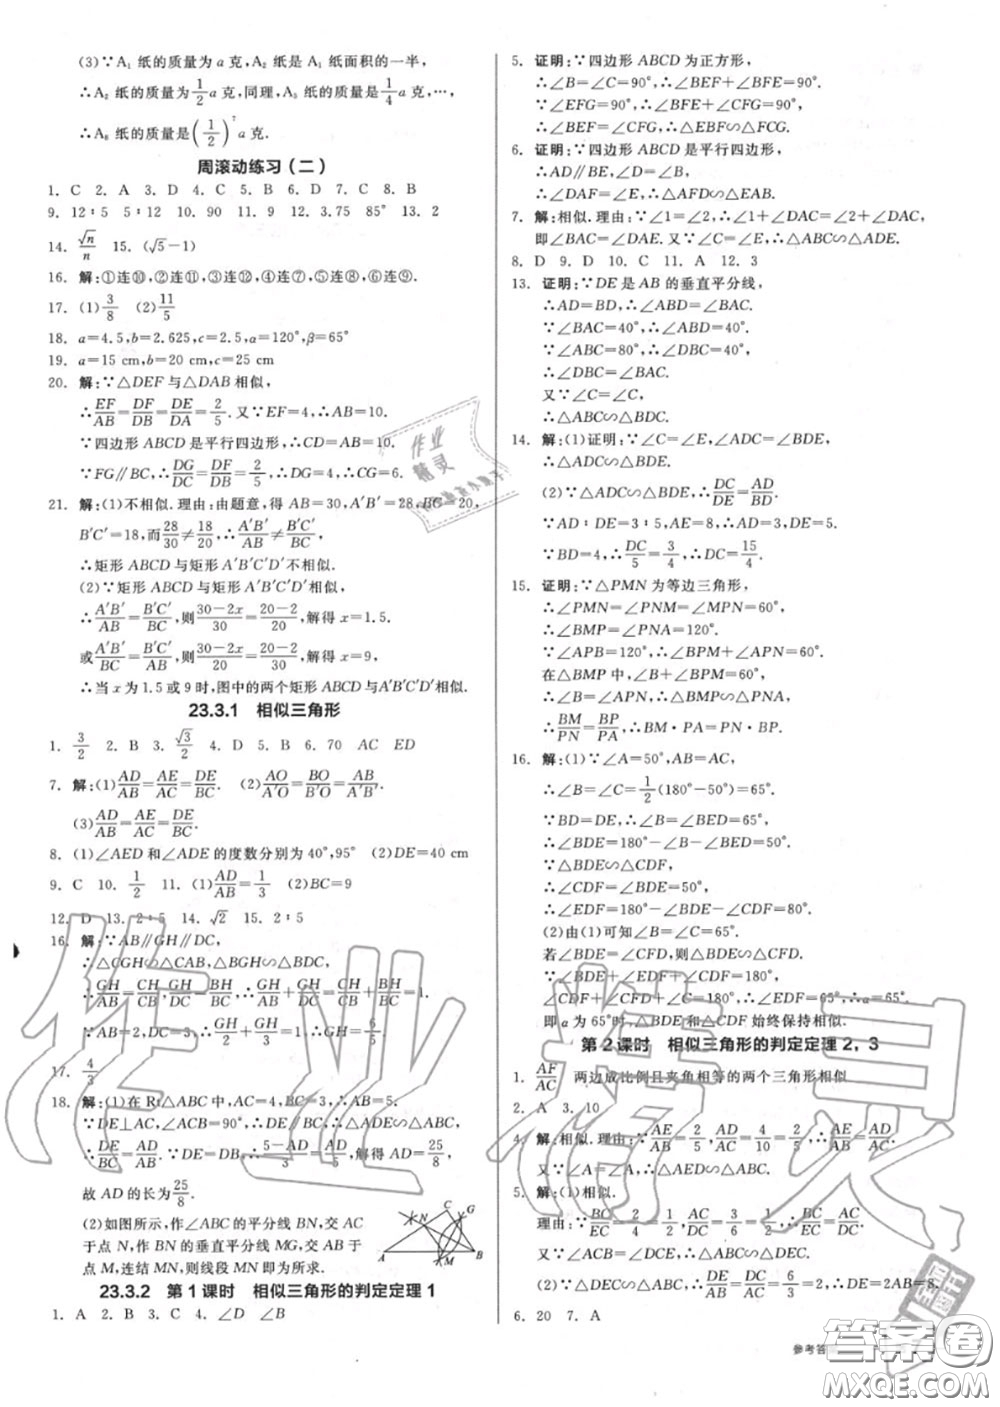 (3)∵A₁ 纸的质量为 a 克,A₂ 纸是 A₁ 纸面积的一半,
∴A₂ 纸的质量为 1/2 a 克,同理,A₃ 纸的质量是 1/4 a 克,…,
∴A₈ 纸的质量是(1/2)⁷a 克.
周滚动练习(二)
1. C 2. A 3. D 4. C 5. B 6. D 7. C 8. B
9. 12∶5 5∶12 10. 90 11. 9 12. 3.75 85° 13. 2
14. √n/n 15. (√5-1)
16. 解:①连⑩,②连⑫,③连⑪,④连⑬,⑤连⑧,⑥连⑨.
17. (1)3/8 (2)11/5
18. a=4.5,b=2.625,c=2.5,α=120°,β=65°
19. a=15 cm,b=20 cm,c=25 cm
20. 解:∵△DEF 与△DAB 相似,
∴EF/AB=DF/DB=DE/DA=2/5.又∵EF=4,∴AB=10.
∵四边形 ABCD 是平行四边形,∴CD=AB=10.
∵FG∥BC,∴DG/DC=DF/DB=2/5,∴CG=6.
21. 解:(1)不相似.理由:由题意,得 AB=30,A′B′=28,BC=20,
B′C′=18,而28/30≠18/20,∴A′B′/AB≠B′C′/BC,
∴矩形 ABCD 与矩形 A′B′C′D′不相似.
(2)∵矩形 ABCD 与矩形 A′B′C′D′相似,
∴A′B′/AB=B′C′/BC,则30-2x/30=20-2/20,解得 x=1.5.
或A′B′/BC=B′C′/AB,则30-2x/20=20-2/30,解得 x=9,
∴当 x 为 1.5 或 9 时,图中的两个矩形 ABCD 与A′B′C′D′相似.
23.3.1 相似三角形
1. 3/2 2. B 3. √3/2 4. D 5. B 6. 70 AC ED
7. 解:(1)AD/AB=AE/AC=DE/BC. (2)AO/A′O=BO/B′O=AB/A′B′.
(3)AD/AB=AE/AC=DE/BC.
8. (1)∠AED 和∠ADE 的度数分别为 40°,95° (2)DE=40 cm
9. C 10. 1/2 11. (1)AD/AB=1/3 (2)BC=9
12. D 13. 2∶5 14. √2 15. 2∶5
16. 解:∵AB∥GH∥DC,
∴△CGH∽△CAB,△BGH∽△BDC,
∴GH/AB=CH/CB,GH/DC=BH/BC,∴GH/AB+GH/DC=CH/CB+BH/BC=1.
∵AB=2,DC=3,∴GH/2+GH/3=1,∴GH=6/5.
17. 4/3
18. 解:(1)在 Rt△ABC 中,AC=4,BC=3,∴AB=5.
∵DE⊥AC,∠ACB=90°,∴DE∥BC,∴△ADE∽△ABC,
∴DE/BC=AD/AB.∵BD=DE,∴
=AD/5,∴AD=25/8,
故 AD 的长为25/8.
(2)如图所示,作∠ABC 的平分线 BN,交 AC
于点 N,作 BN 的垂直平分线 MG,交 AB 于
点 M,连结 MN,则线段 MN 即为所求.
A N C G M B
23.3.2 第 1 课时 相似三角形的判定定理 1
1. A 2. C 3. C 4. ∠D ∠B
5. 证明:∵四边形 ABCD 为正方形,
∴∠B=∠C=90°,∴∠BEF+∠BFE=90°.
∵∠EFG=90°,∴∠BFE+∠CFG=90°,
∴∠BEF=∠CFG,∴△EBF∽△FCG.
6. 证明:∵四边形 ABCD 是平行四边形,
∴AD∥BE,∠D=∠B,
∴∠DAF=∠E,∴△AFD∽△EAB.
7. 解:相似.理由:∵∠1=∠2,∴∠1+∠DAC=∠2+∠DAC,
即∠BAC=∠DAE.又∵∠C=∠E,∴△ABC∽△ADE.
8. D 9. D 10. C 11. A 12. 3
13. 证明:∵DE 是 AB 的垂直平分线,
∴AD=BD,∴∠ABD=∠BAC.
∵∠BAC=40°,∴∠ABD=40°.
∵∠ABC=80°,∴∠DBC=40°,
∴∠DBC=∠BAC.
又∵∠C=∠C,
∴△ABC∽△BDC.
14. 解:(1)证明:∵∠C=∠E,∠ADC=∠BDE,
∴△ADC∽△BDE.
(2)∵△ADC∽△BDE,∴DC/DE=AD/BD.
∵AD∶DE=3∶5,AE=8,∴AD=3,DE=5.
∵BD=4,∴DC/5=3/4,∴DC=15/4.
15. 证明:∵△PMN 为等边三角形,
∴∠PMN=∠PNM=∠MPN=60°,
∴∠BMP=∠PNA=120°.
∵∠APB=120°,∴∠BPM+∠APN=60°.
在△BMP 中,∵∠B+∠BPM=60°,
∴∠B=∠APN,∴△BMP∽△PNA,
∴BM/PN=BP/PA,∴BM·PA=PN·BP.
16. 解:(1)∵∠A=50°,AB=AC,
∴∠B=∠C=1/2(180°-50°)=65°.
∵BD=DE,∴∠B=∠BED=65°,
∴∠BDE=180°-∠B-∠BED=50°.
∵△BDE∽△CDF,
∴∠CDF=∠BDE=50°,
∴∠EDF=180°-∠BDE-∠CDF=80°.
(2)由(1)可知∠B=∠C=65°.
若∠BDE=∠CDF,则△BDE∽△CDF.
∵∠BDE+∠EDF+∠CDF=180°,
∠CDF+∠CFD+∠C=180°,∴∠EDF=65°,∴α=65°,
即 α 为 65°时,△BDE 和△CDF 始终保持相似.
第 2 课时 相似三角形的判定定理 2,3
1. AF/AC 两边成比例且夹角相等的两个三角形相似
2. A 3. 10
4. 解:相似.理由:∵AE/AB=2/5,AD/AC=4/10=2/5,∴AE/AB=AD/AC.
又∵∠A=∠A,∴△AED∽△ABC.
5. 解:(1)相似.
理由:∵BC/EC=2/4=1/2,AC/DC=3/6=1/2,∴BC/EC=AC/DC.
又∵∠ACB=∠DCE,∴△ABC∽△DEC.
6. 20 7. A
参考答案
作业精灵
答案卷
MXQE.COM